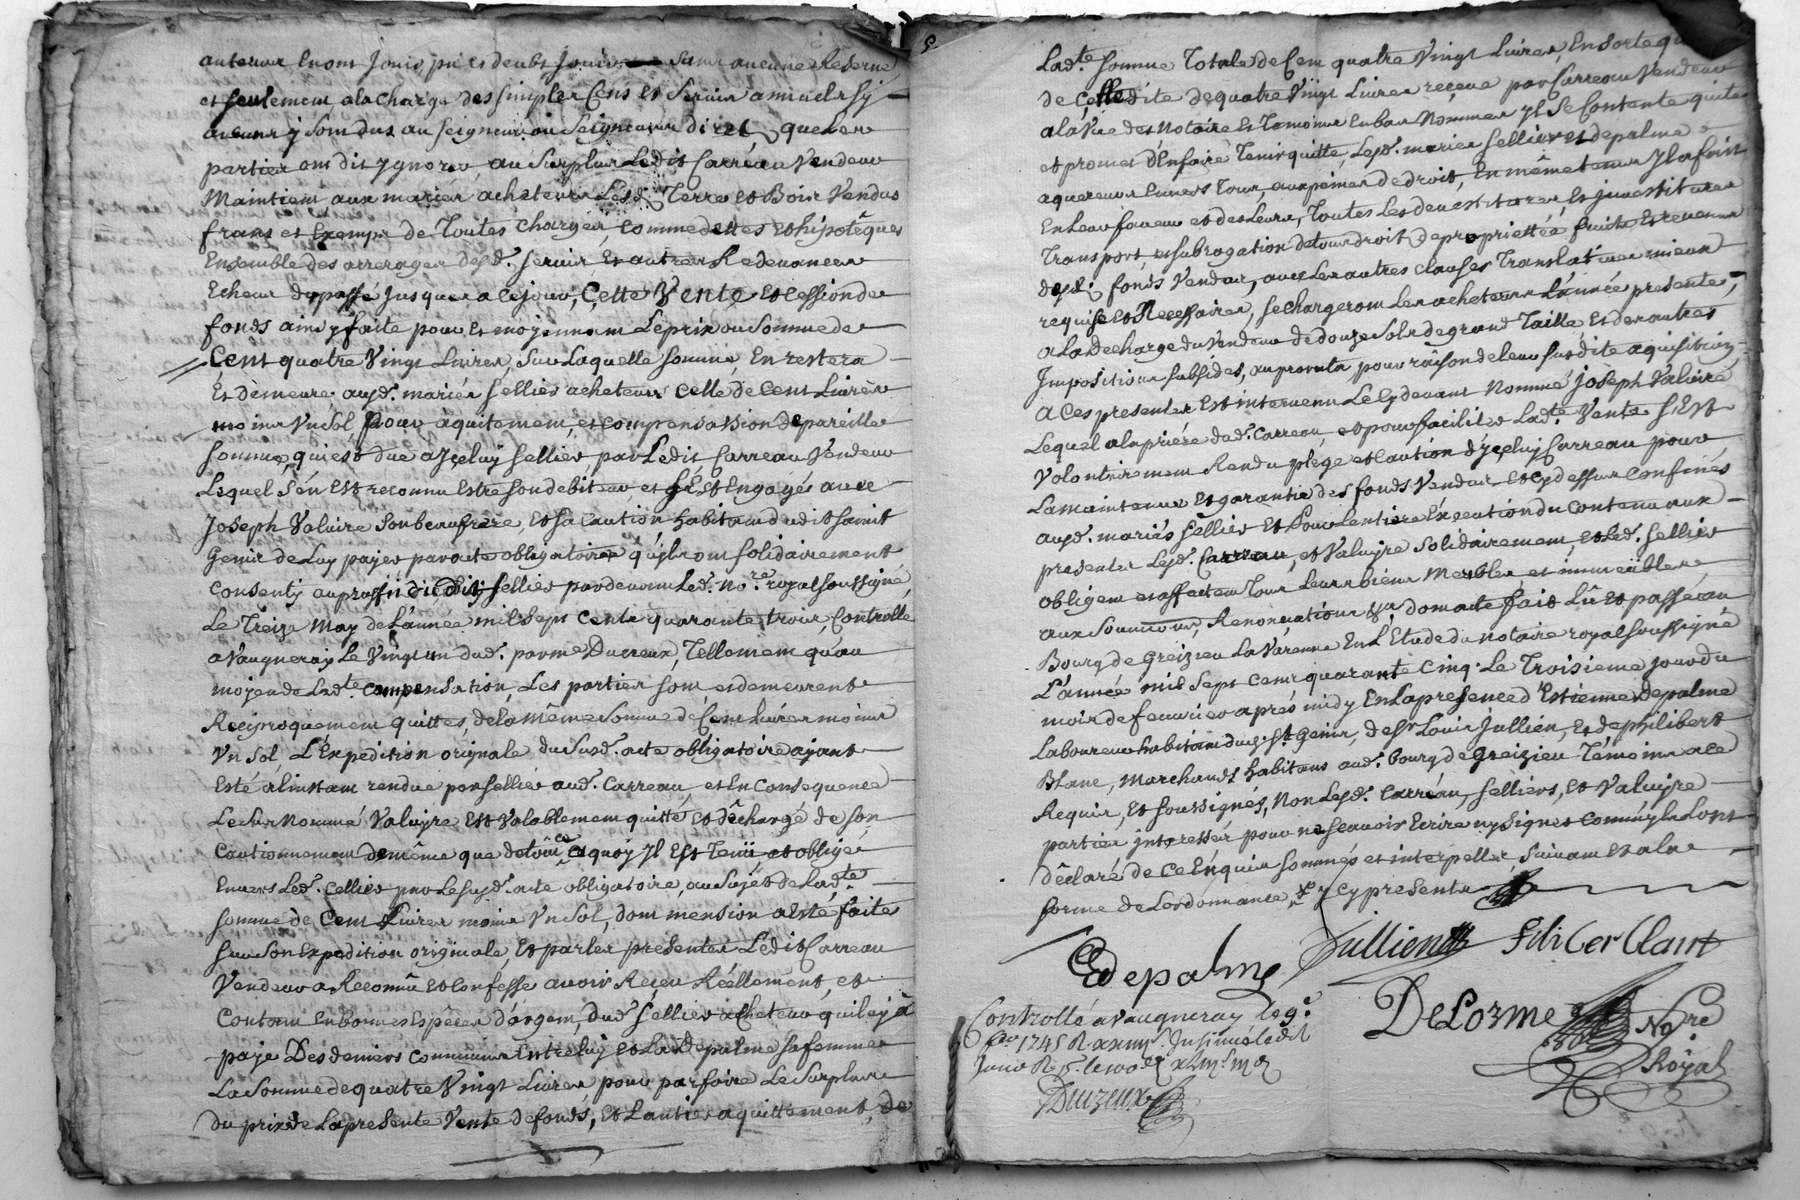 auteurs en ont jouis pu et deubt jouir sans aucune Reserve
et seulement a la charge des simples Cens et Servis annuels sy
aucuns y sont dus au seigneur ou seigneurs direts que les
parties ont dit ygnorer, au surplus Ledit Carréau Vendeur
Maintient aux mariés acheteurs Lesd. Terre et Bois Vendus
frans et Exempt de Toutes Charges, comme dettes et hipotêques
Ensemble des arrerages desd. servis, et autres Redevances
Echeus du passé Jusques a ce jour, Cette Vente et cession de
fonds ainsy faite pour et moyennant Le prix ou somme de
Cent quatre Vingt Livres, sur Laquelle somme, En restera
Et démeure auxd. mariés sellies acheteurs celle de Cent Livres
moins Un sol pour âquitement, et compensation de pareille
somme, qui est due a Jçeluy sellies par Ledit Carreau Vendeur
Lequel s'én est reconnu Estre son debiteur, et s'Est Engagés avec
Joseph Valuire son beaufrere, et sa caution habitant dudit saint
Genis de Luy payer par acte obligatoire qu'ils ont solidairement
Consenty au proffit dudit sellies pardevant Led. No.re royal soussigné
Le Treize May de L'année mil sept Cents quarante trois, Controllé
a Vaugneray Le Vingt un dud. par me Ducreux, Tellement qu'au
moyen de Lad.te compensation, Les parties sont et demeurent
Reciproquement quittes, de La même somme de Cent Livres moins
Un sol, L'Expedition originale du susd. acte obligatoire ayant
Esté a L'instant rendue par sellies aud. Carreau, et En Consequence
Le sus Nommé Valuyre Est Valablement quitte et dêchargé de son
Cautionnement de même que de tout ce a quoy Jl Est Tenü et obligé
Envers Led. Cellies par Le susd. acte obligatoire, au sujet de Lad.te
somme de Cent Livres moins Un sol, dont mension a Esté faite
sur son Expedition originale, Et par les presentes Ledit Carreau
Vendeur a Reconnû et Confesse avoir Reçeu Réellement, et
Contant En bonnes Espèces d'argent, dud. sellies acheteur qui Luy à
payé Des deniers communs Entre luy et La d. depalme sa femme
La somme de quatre Vingt Livres pour parfaire Le surplus
du prix de La presente Vente de fonds, et L'antier aquittement, de
Lad.te somme Totale de Cent quatre Vingt Livres, En sorte que
de Celledite de quatre Vingt Livres reçeue par Carreau Vendeur
a la Vue des Notaire et Temoins En bas Nommés Jl se Contente quitte
et promet d'En faire Tenir quitte, Lesd. mariés sellies et depalme
aquereurs Envers Tous, aux peines de droit, En même tems Jl a fait
En Leur faveur et des Leurs, Toutes Les devestitures, Et Jnvestitures
Transport, et subrogation de tous droit De propriettée fruits Et revenus
desd. fonds Vendus, avec Les autres clauses Translatives mieux
requise et Neçessaires, se chargeront Les acheteurs L'année presente,
a La decharge du Vendeur de douze sols de grand Taille et des autres
Impositions subsides, au prorata pour raison de Leur susdite aquisition,
A Ces presentes Est intervenu Le Cy devant Nommé Joseph Valuire
Lequel a la priere dud. Carreau, et pour faciliter Lad.te Vente s'Est
Volontairement Rendu plège et Caution d'yçeluy Carreau pour
La maintenue et garantie des fonds Vendus et Cy dessus confinés
auxd. mariés sellies et Pour L'entiere Execution du Contenu aux
presentes Lesd. Carreau, et Valuyre solidairement, et Led. sellies
obligent et affectent Tous Leurs biens Meubles et immeübles
aux soumissions, Renonçations &a, dont acte fait Lû et passé au
Bourg de Greizieu La Varenne En L'Etude du notaire royal soussigné
L'année mil sept cent quarante Cinq Le Troisieme jour du
mois de fevrier aprés midy En La presence d'Estienne depalme
Laboureur habitant dud. st. Genis, de sr. Louis Jullien, et de philibert
Blanc, Marchands habitans aud. bourg de Greizieu Témoins a ce
Requis, et soussignés, Non Lesd. Carréau, selliers, et Valuyre
parties intressées pour ne sçavoir Ecrire ny signer Comm'yls L'ont
dêclaré de ce Enquis sommés et interpellés, suivant Et a la
forme de L'ordonnance, y cy presentes
E depalme Jullien
DeLorme No.re
Royal
Controllé a Vaugneray
1745